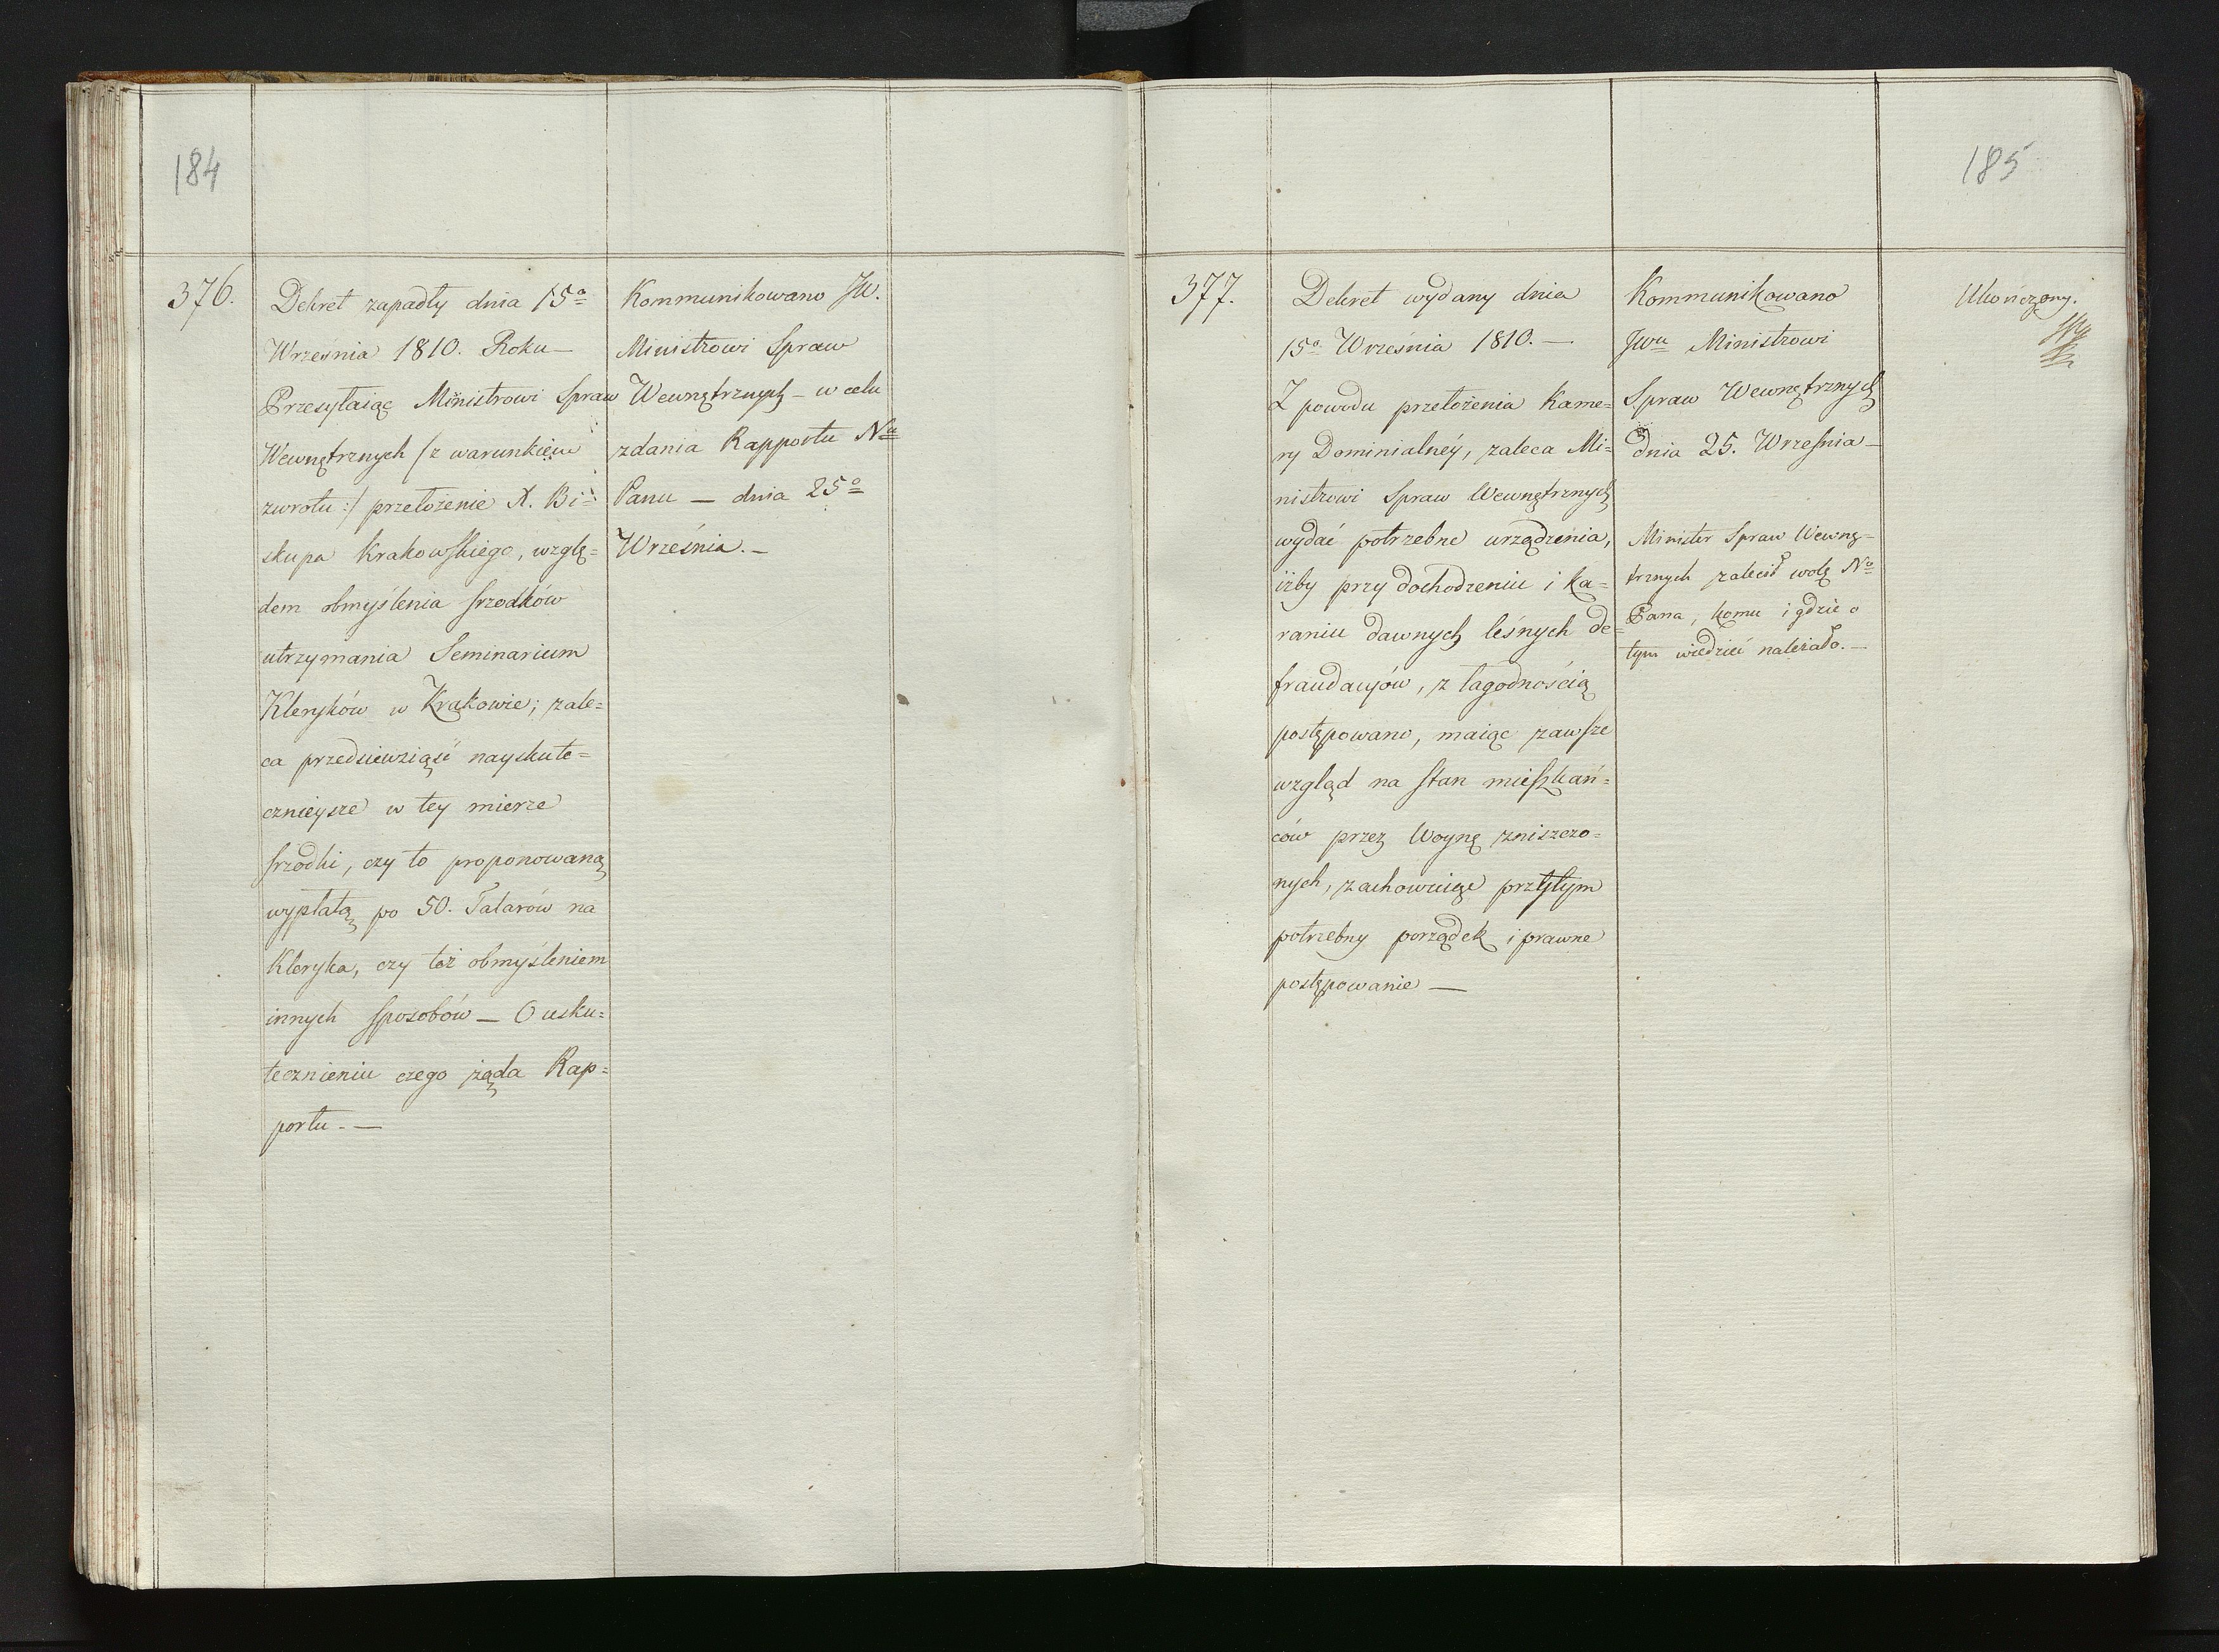 184
376.
Dekret zapadły dnia 15º
Września 1810. Roku —
Przesyłaiąc Ministrowi Spraw
Wewnętrznych /z warunkiem
zwrotu:/ przełożenie X. Bi=
skupa Krakowskiego, wzglę=
dem obmyślenia srzodków
utrzymania Seminarium
Kleryków w Krakowie; zale=
ca przedsiewziąść nayskute=
cznieysze w tey mierze
srzodki, czy to proponowaną
wypłatą po 50. Talarów na
Kleryka, czy też obmyśleniem
innych sposobów — O usku=
tecznieniu czego żąda Rap=
portu. —
Kommunikowano JW.
Ministrowi Spraw
Wewnętrznych — w celu
zdania Rapportu Nu
Panu — dnia 25º
Września. —
185
377.
Dekret wydany dnia
15º Września 1810. —
Z powodu przełożenia Kame=
ry Dominialnéy, zaleca Mi=
nistrowi Spraw Wewnętrznych
wydać potrzebne urządzenia,
iżby przy dochodzeniu i ka=
raniu dawnych leśnych de=
fraudacyów, z łagodnością
postępowano, maiąc zawsze
wzgląd na stan mieszkań=
ców przez Woynę zniszczo=
nych, zachowuiąc przytym
potrzebny porządek i prawne
postępowanie —
Kommunikowano
JWu Ministrowi
Spraw Wewnętrznych
dnia 25. Września —
Minister Spraw Wewnę=
trznych zalecił wolę Nº
Pana, komu i gdzie o
tym wiedzieć należało. —
Ukończony.